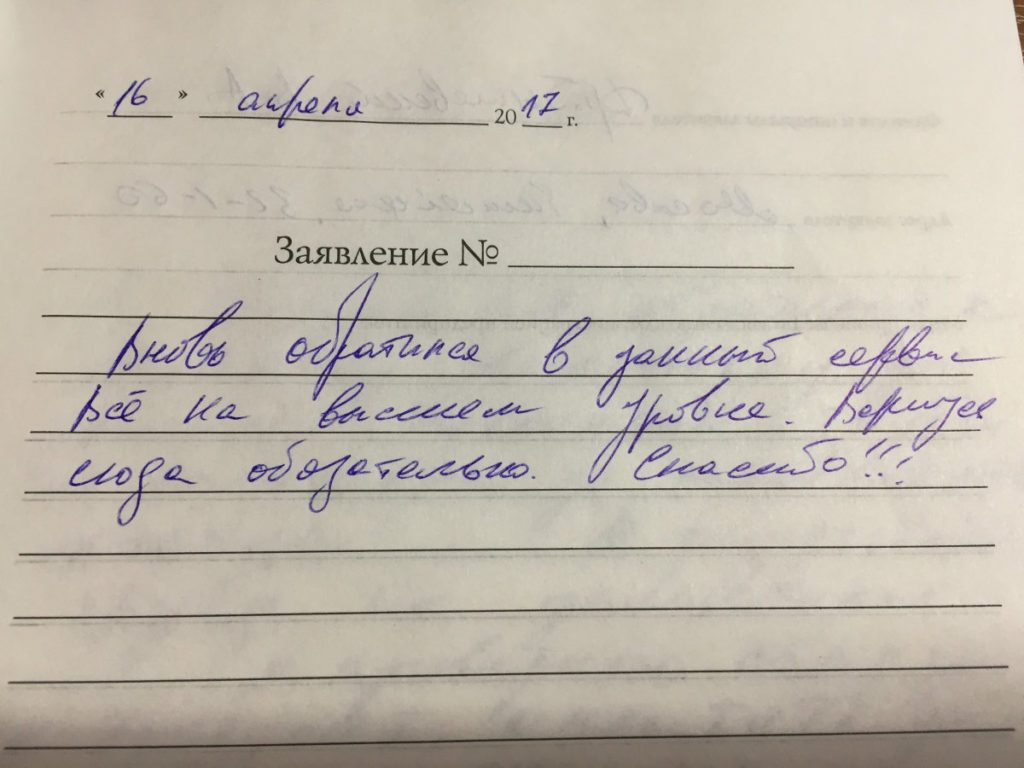 « 16 » апреля 2017 г.
Заявление №
Вновь обратился в данный сервис
Всё на высшем уровне. Вернусь
сюда обязательно. Спасибо!!!